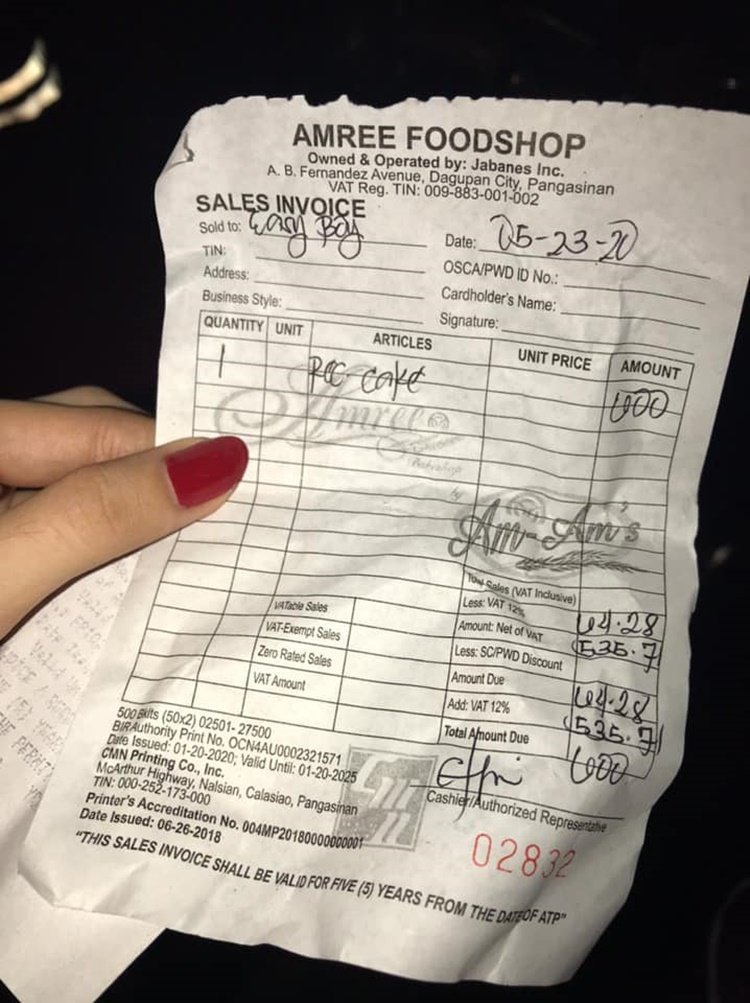 AMREE FOODSHOP
Owned & Operated by: Jabanes Inc.
A. B. Fernandez Avenue, Dagupan City, Pangasinan
VAT Reg. TIN: 009-883-001-002
SALES INVOICE
Sold to: Easy Boy
Date: 05-23-20
TIN:
OSCA/PWD ID No.:
Address:
Cardholder's Name:
Business Style:
Signature:
QUANTITY UNIT ARTICLES UNIT PRICE AMOUNT
1 cake 600
Amree
by
Am-Am's
Total Sales (VAT Inclusive)
VATable Sales Less: VAT 12% 64.28
VAT-Exempt Sales Amount: Net of VAT 535.7
Zero Rated Sales Less: SC/PWD Discount
VAT Amount Amount Due 64.28
Add: VAT 12% 535.7
Total Amount Due 600
500 Bklts (50x2) 02501- 27500
BIR Authority Print No. OCN4AU0002321571
Date Issued: 01-20-2020; Valid Until: 01-20-2025
CMN Printing Co., Inc.
McArthur Highway, Nalsian, Calasiao, Pangasinan
TIN: 000-252-173-000
Printer's Accreditation No. 004MP20180000000001
Date Issued: 06-26-2018
Cashier/Authorized Representative
02832
"THIS SALES INVOICE SHALL BE VALID FOR FIVE (5) YEARS FROM THE DATE OF ATP"